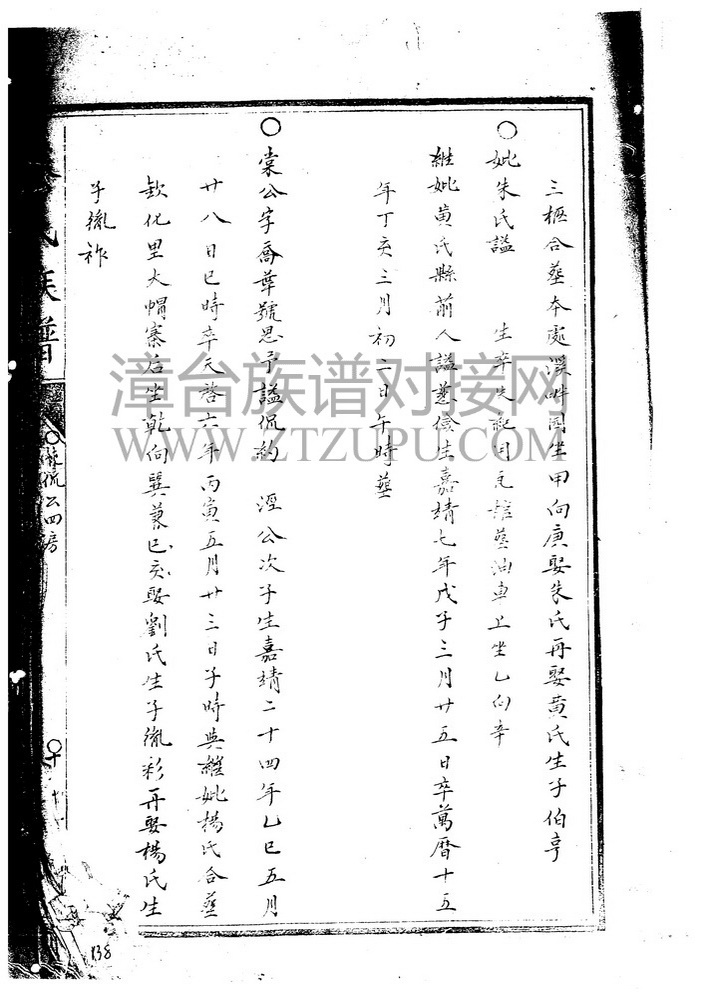 三柩合塟本處溪畔園坐甲向庚娶朱氏再娶黃氏生子伯亨
○妣朱氏諡　生卒失祀同瓦罐塟油車上坐乙向辛
継妣黃氏縣前人諡慈儉生嘉靖七年戊子三月廿五日卒萬曆十五
年丁亥三月初二日午時塟
○棠公字喬華號思予諡侃約　溼公次子生嘉靖二十四年乙巳五月
廿八日巳時卒天啓六年丙寅五月廿三日子時與継妣楊氏合塟
欽化里大帽寨后坐乾向巽兼巳亥娶劉氏生子胤彩再娶楊氏生
子胤祚
氏族譜
公四房
138
漳台族谱对接网
WWW.ZTZUPU.COM